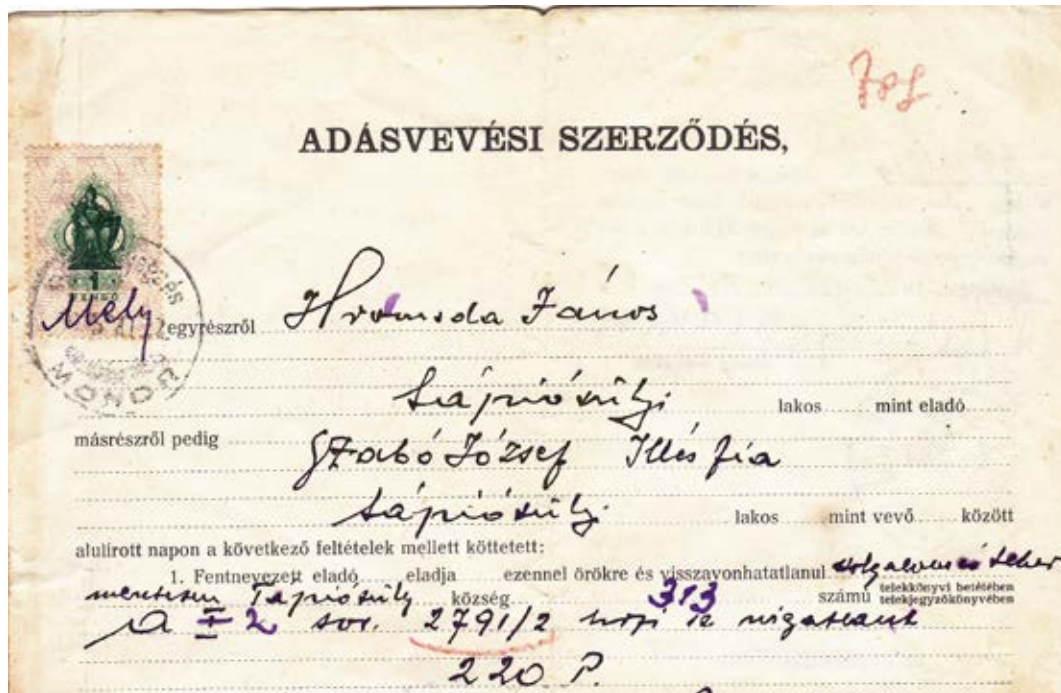 ADÁSVEVÉSI SZERZŐDÉS,
1
PENGŐ
Mely
MONOR
egyrészről Hromada János
tápiósülyi lakos mint eladó
másrészről pedig Szabó József Illés fia
tápiósülyi lakos mint vevő között
alulirott napon a következő feltételek mellett köttetett:
1. Fentnevezett eladó eladja ezennel örökre és visszavonhatatlanul
mentesen Tápiósüly község 313 számú telekkönyvi betétében telekjegyzőkönyvében
A I 2 sor. 2791/2 hrsz
220 P.